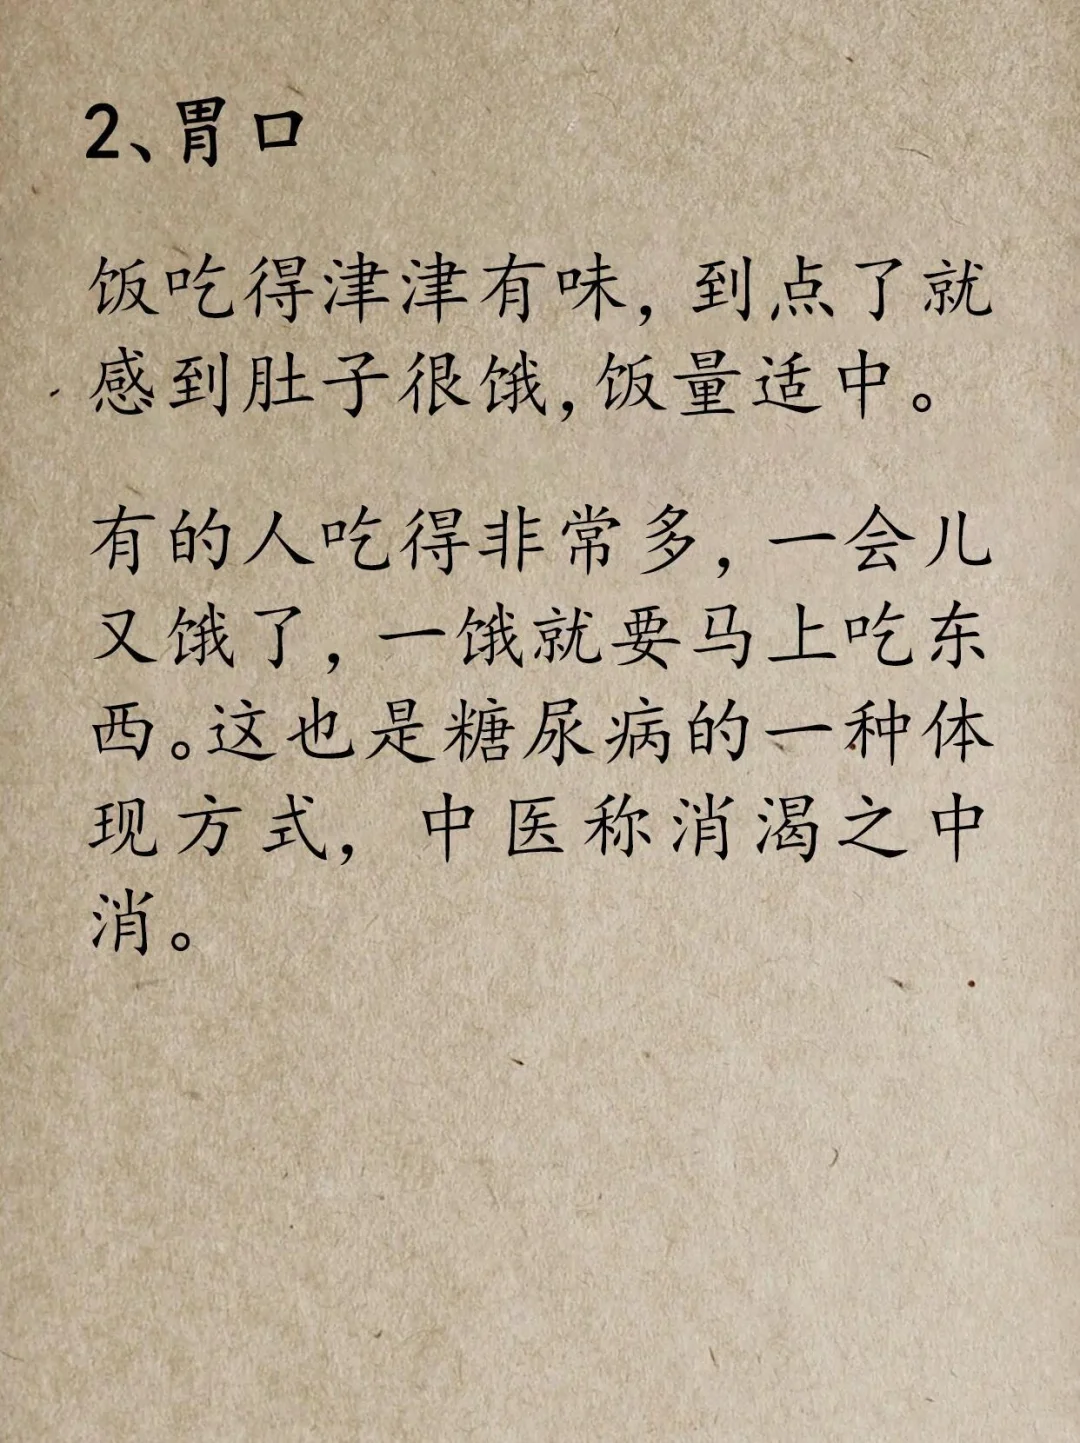 2、胃口
饭吃得津津有味，到点了就
感到肚子很饿，饭量适中。
有的人吃得非常多，一会儿
又饿了，一饿就要马上吃东
西。这也是糖尿病的一种体
现方式，中医称消渴之中
消。